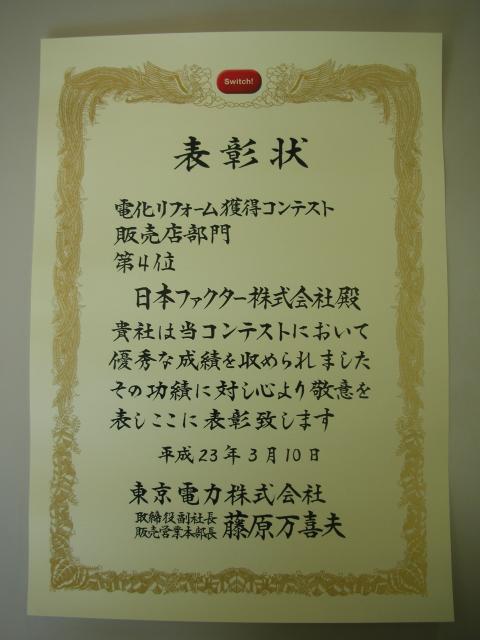 Switch!
表彰状
電化リフォーム獲得コンテスト
販売店部門
第4位
日本ファクター株式会社殿
貴社は当コンテストにおいて
優秀な成績を収められました
その功績に対し心より敬意を
表しここに表彰致します
平成23年3月10日
東京電力株式会社
取締役副社長
販売営業本部長 藤原万喜夫